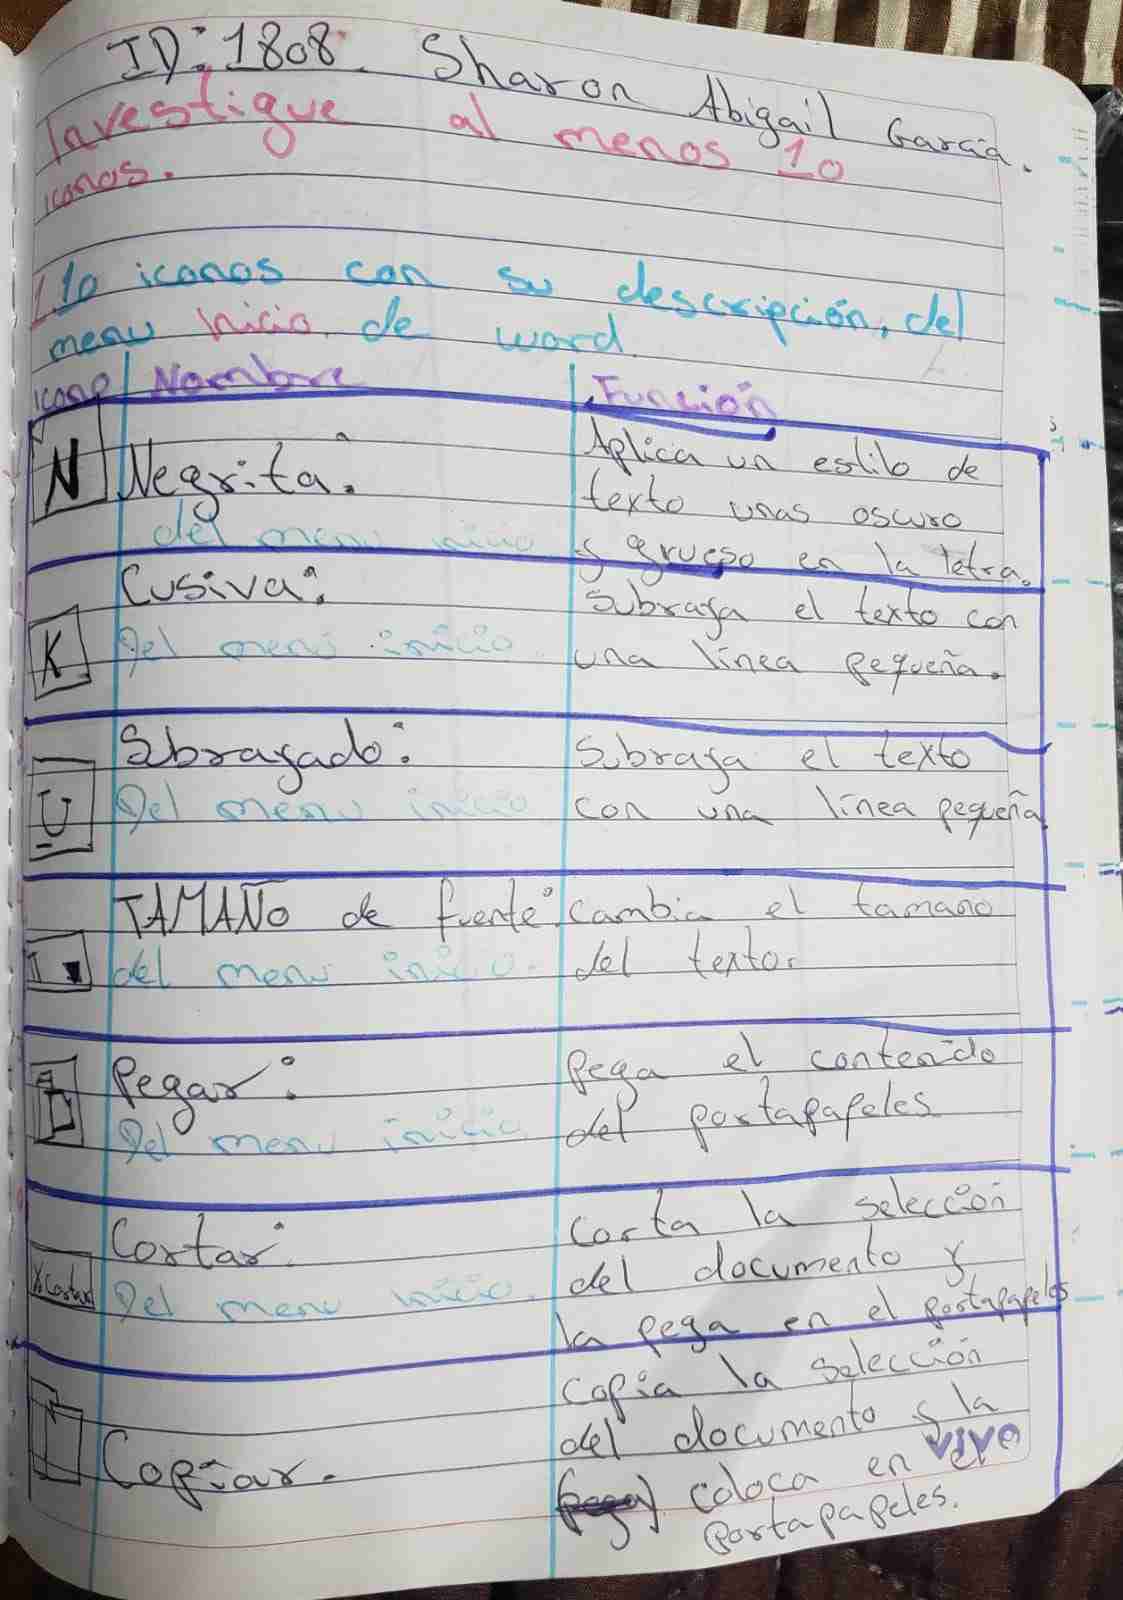 ID: 1808. Sharon Abigail Garcia.
Investigue al menos 10
iconos.
1. 10 iconos con su descripción, del
menu Inicio. de word.
icono Nombre Función
N Negrita: Aplica un estilo de
texto unas oscuro
del menu inicio y grueso en la letra.
Cusiva: Subraya el texto con
K Del menu inicio. una línea pequeña.
Subrayado: Subraya el texto
U Del menu inicio con una línea pequeña.
TAMAÑO de fuente: cambia el tamano
I del menu inicio. del texto.
Pegar: Pega el contenido
Del menu inicio del portapapeles
Cortar: Corta la selección
X Cortar Del menu inicio. del documento y
la pega en el portapapeles
Copia la selección
del documento y la
Copiar. (pega) coloca en el
portapapeles.
VIVO